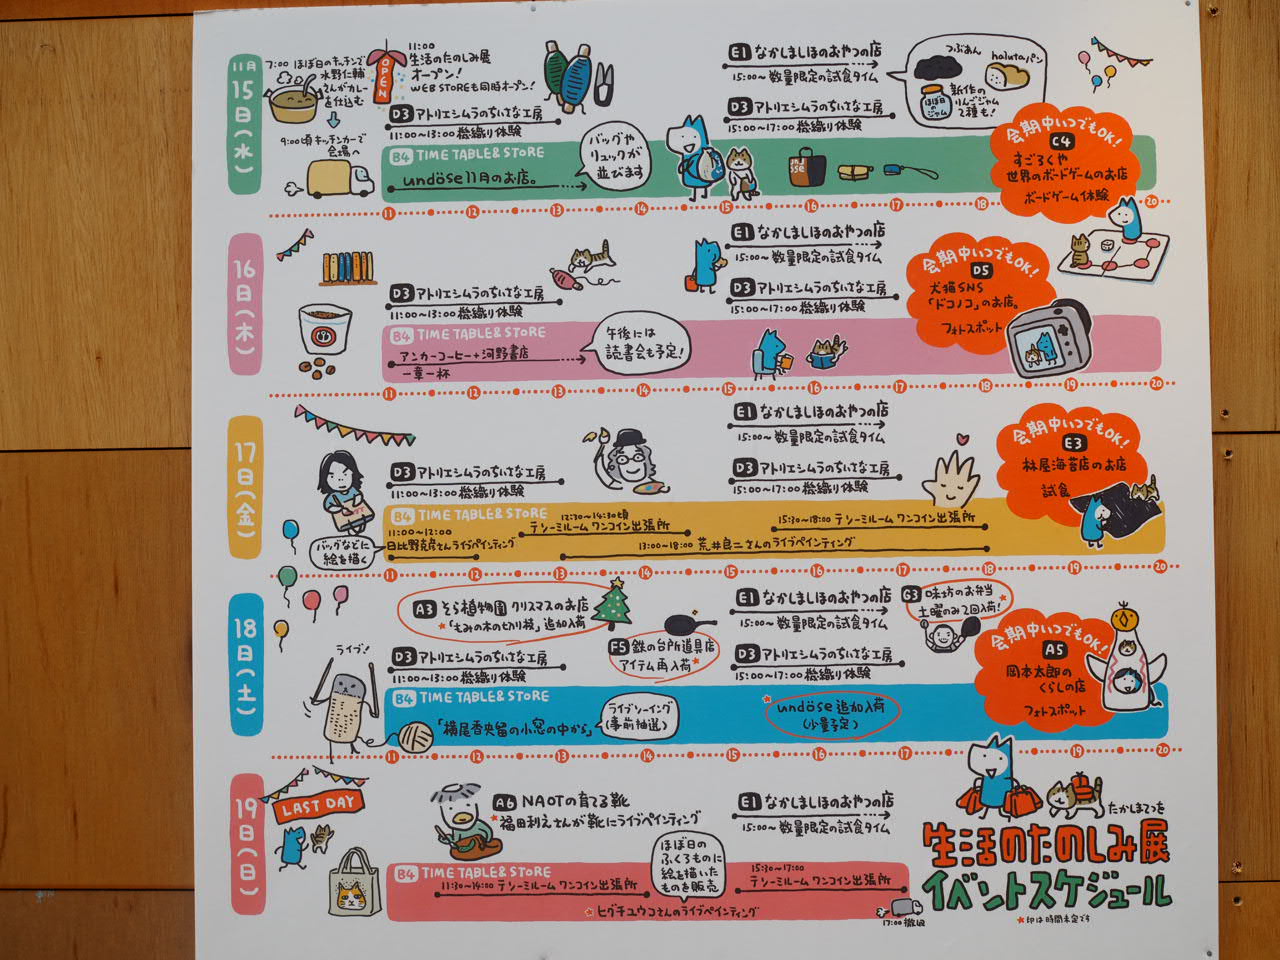 11月
15日(水)
7:00 ほぼ日のキッチンで
水野仁輔
さんがカレー
を仕込む
9:00頃キッチンカーで
会場へ
OPEN
11:00
生活のたのしみ展
オープン!
WEB STOREも同時オープン!
D3 アトリエシムラのちいさな工房
11:00〜13:00 機織り体験
E1 なかしましほのおやつの店
15:00〜 数量限定の試食タイム
つぶあん
halutaパン
ほぼ日のジャム
新作の
りんごジャム
2種も!
D3 アトリエシムラのちいさな工房
15:00〜17:00 機織り体験
B4 TIME TABLE&STORE
undöse 11月のお店。
バッグや
リュックが
並びます
会期中いつでもOK!
C4
すごろくや
世界のボードゲームのお店
ボードゲーム体験
11 12 13 14 15 16 17 18 20
16日(木)
E1 なかしましほのおやつの店
15:00〜 数量限定の試食タイム
D3 アトリエシムラのちいさな工房
11:00〜13:00 機織り体験
D3 アトリエシムラのちいさな工房
15:00〜17:00 機織り体験
B4 TIME TABLE&STORE
アンカーコーヒー+河野書店
一章一杯
午後には
読書会も予定!
会期中いつでもOK!
D5
犬猫SNS
「ドコノコ」のお店。
フォトスポット
11 12 13 14 15 16 17 18 19 20
17日(金)
E1 なかしましほのおやつの店
15:00〜 数量限定の試食タイム
D3 アトリエシムラのちいさな工房
11:00〜13:00 機織り体験
D3 アトリエシムラのちいさな工房
15:00〜17:00 機織り体験
B4 TIME TABLE&STORE
11:00〜12:00
日比野克彦さんライブペインティング
バッグなどに
絵を描く
12:30〜14:30頃
テソーミルーム ワンコイン出張所
15:30〜18:00 テソーミルーム ワンコイン出張所
13:00〜18:00 荒井良二さんのライブペインティング
会期中いつでもOK!
E3
林屋海苔店のお店
試食
11 12 13 14 15 16 17 18 19 20
18日(土)
A3 そら植物園 クリスマスのお店
★「もみの木の切り枝」追加入荷
F5 鉄の台所道具店
アイテム再入荷★
E1 なかしましほのおやつの店
15:00〜 数量限定の試食タイム
G3 味坊のお弁当
土曜のみ2回入荷!★
ライブ!
D3 アトリエシムラのちいさな工房
11:00〜13:00 機織り体験
D3 アトリエシムラのちいさな工房
15:00〜17:00 機織り体験
B4 TIME TABLE&STORE
「横尾香央留の小窓の中から」
ライブソーイング
(事前抽選)
★undöse 追加入荷
(少量予定)
会期中いつでもOK!
A5
岡本太郎の
くらしの店
フォトスポット
11 12 13 14 15 16 17 19 20
19日(日)
LAST DAY
A6 NAOTの育てる靴
★福田利之さんが靴にライブペインティング
E1 なかしましほのおやつの店
15:00〜 数量限定の試食タイム
B4 TIME TABLE&STORE
11:30〜14:00 テソーミルーム ワンコイン出張所
ほぼ日の
ふくろものに
絵を描いた
ものを販売
15:30〜17:00
テソーミルーム ワンコイン出張所
★ヒグチユウコさんのライブペインティング
17:00 撤収
たかしまてつを
生活のたのしみ展
イベントスケジュール
★印は時間未定です